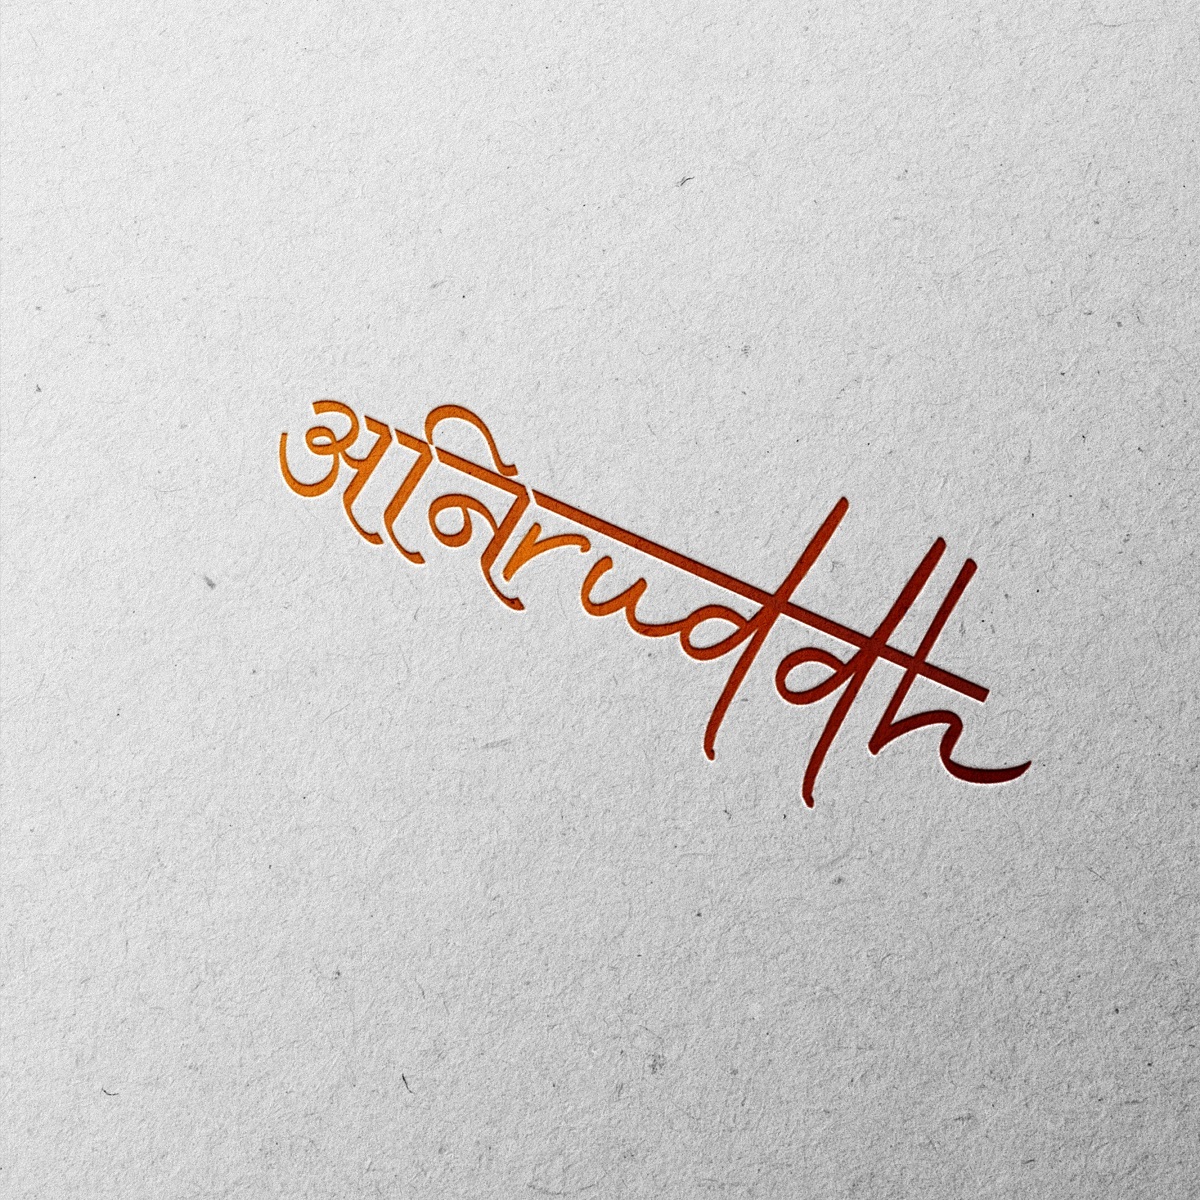 अनिruddh